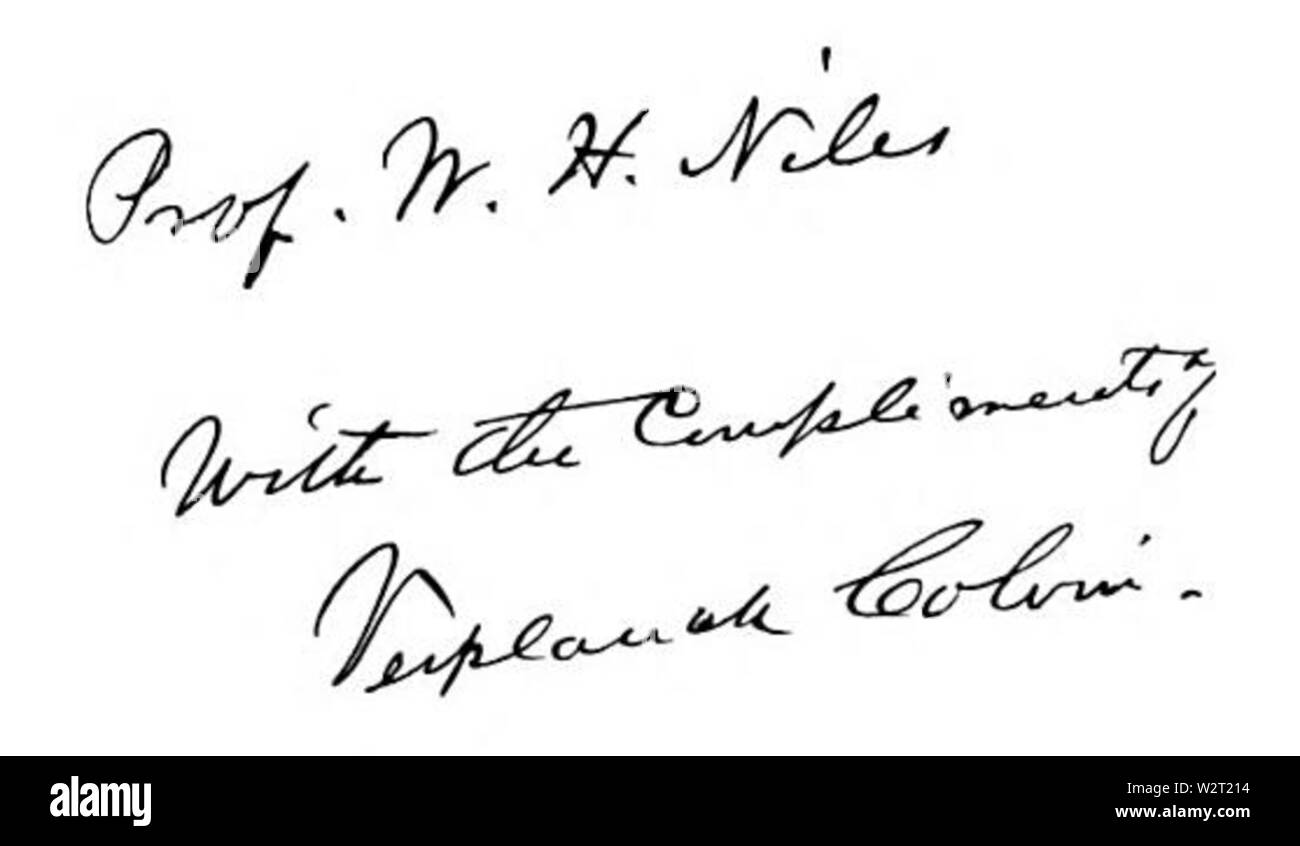 Prof. W. H. Niles
With the Compliments of
Verplanck Colvin.
alamy
Image ID: W2T214
www.alamy.com